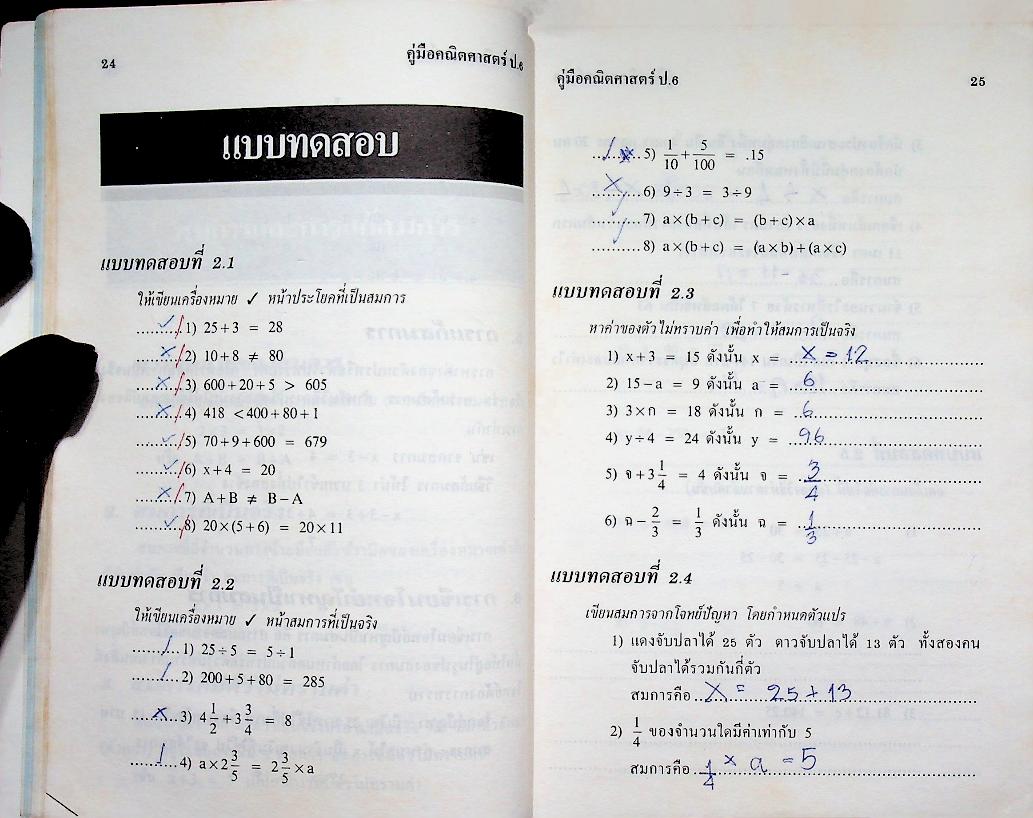 24
คู่มือคณิตศาสตร์ ป.6
แบบทดสอบ
แบบทดสอบที่ 2.1
ให้เขียนเครื่องหมาย ✓ หน้าประโยคที่เป็นสมการ
✓ 1) 25+3 = 28
× 2) 10+8 ≠ 80
× 3) 600+20+5 > 605
× 4) 418 <400+80+1
✓ 5) 70+9+600 = 679
✓ 6) x+4 = 20
× 7) A+B ≠ B−A
✓ 8) 20×(5+6) = 20×11
แบบทดสอบที่ 2.2
ให้เขียนเครื่องหมาย ✓ หน้าสมการที่เป็นจริง
/ 1) 25÷5 = 5÷1
/ 2) 200+5+80 = 285
× 3) 4 1/2 + 3 3/4 = 8
/ 4) a×2 3/5 = 2 3/5 ×a
คู่มือคณิตศาสตร์ ป.6
25
/ 5) 1/10 + 5/100 = .15
× 6) 9÷3 = 3÷9
/ 7) a×(b+c) = (b+c)×a
/ 8) a×(b+c) = (a×b)+(a×c)
แบบทดสอบที่ 2.3
หาค่าของตัวไม่ทราบค่า เพื่อทำให้สมการเป็นจริง
1) x+3 = 15 ดังนั้น x = x = 12
2) 15−a = 9 ดังนั้น a = 6
3) 3×ก = 18 ดังนั้น ก = 6
4) y÷4 = 24 ดังนั้น y = 96
5) จ+3 1/4 = 4 ดังนั้น จ = 3/4
6) ฉ− 2/3 = 1/3 ดังนั้น ฉ = 1/3
แบบทดสอบที่ 2.4
เขียนสมการจากโจทย์ปัญหา โดยกำหนดตัวแปร
1) แดงจับปลาได้ 25 ตัว ดาวจับปลาได้ 13 ตัว ทั้งสองคน
จับปลาได้รวมกันกี่ตัว
สมการคือ X = 25+13
2) 1/4 ของจำนวนใดมีค่าเท่ากับ 5
สมการคือ 1/4 × a = 5